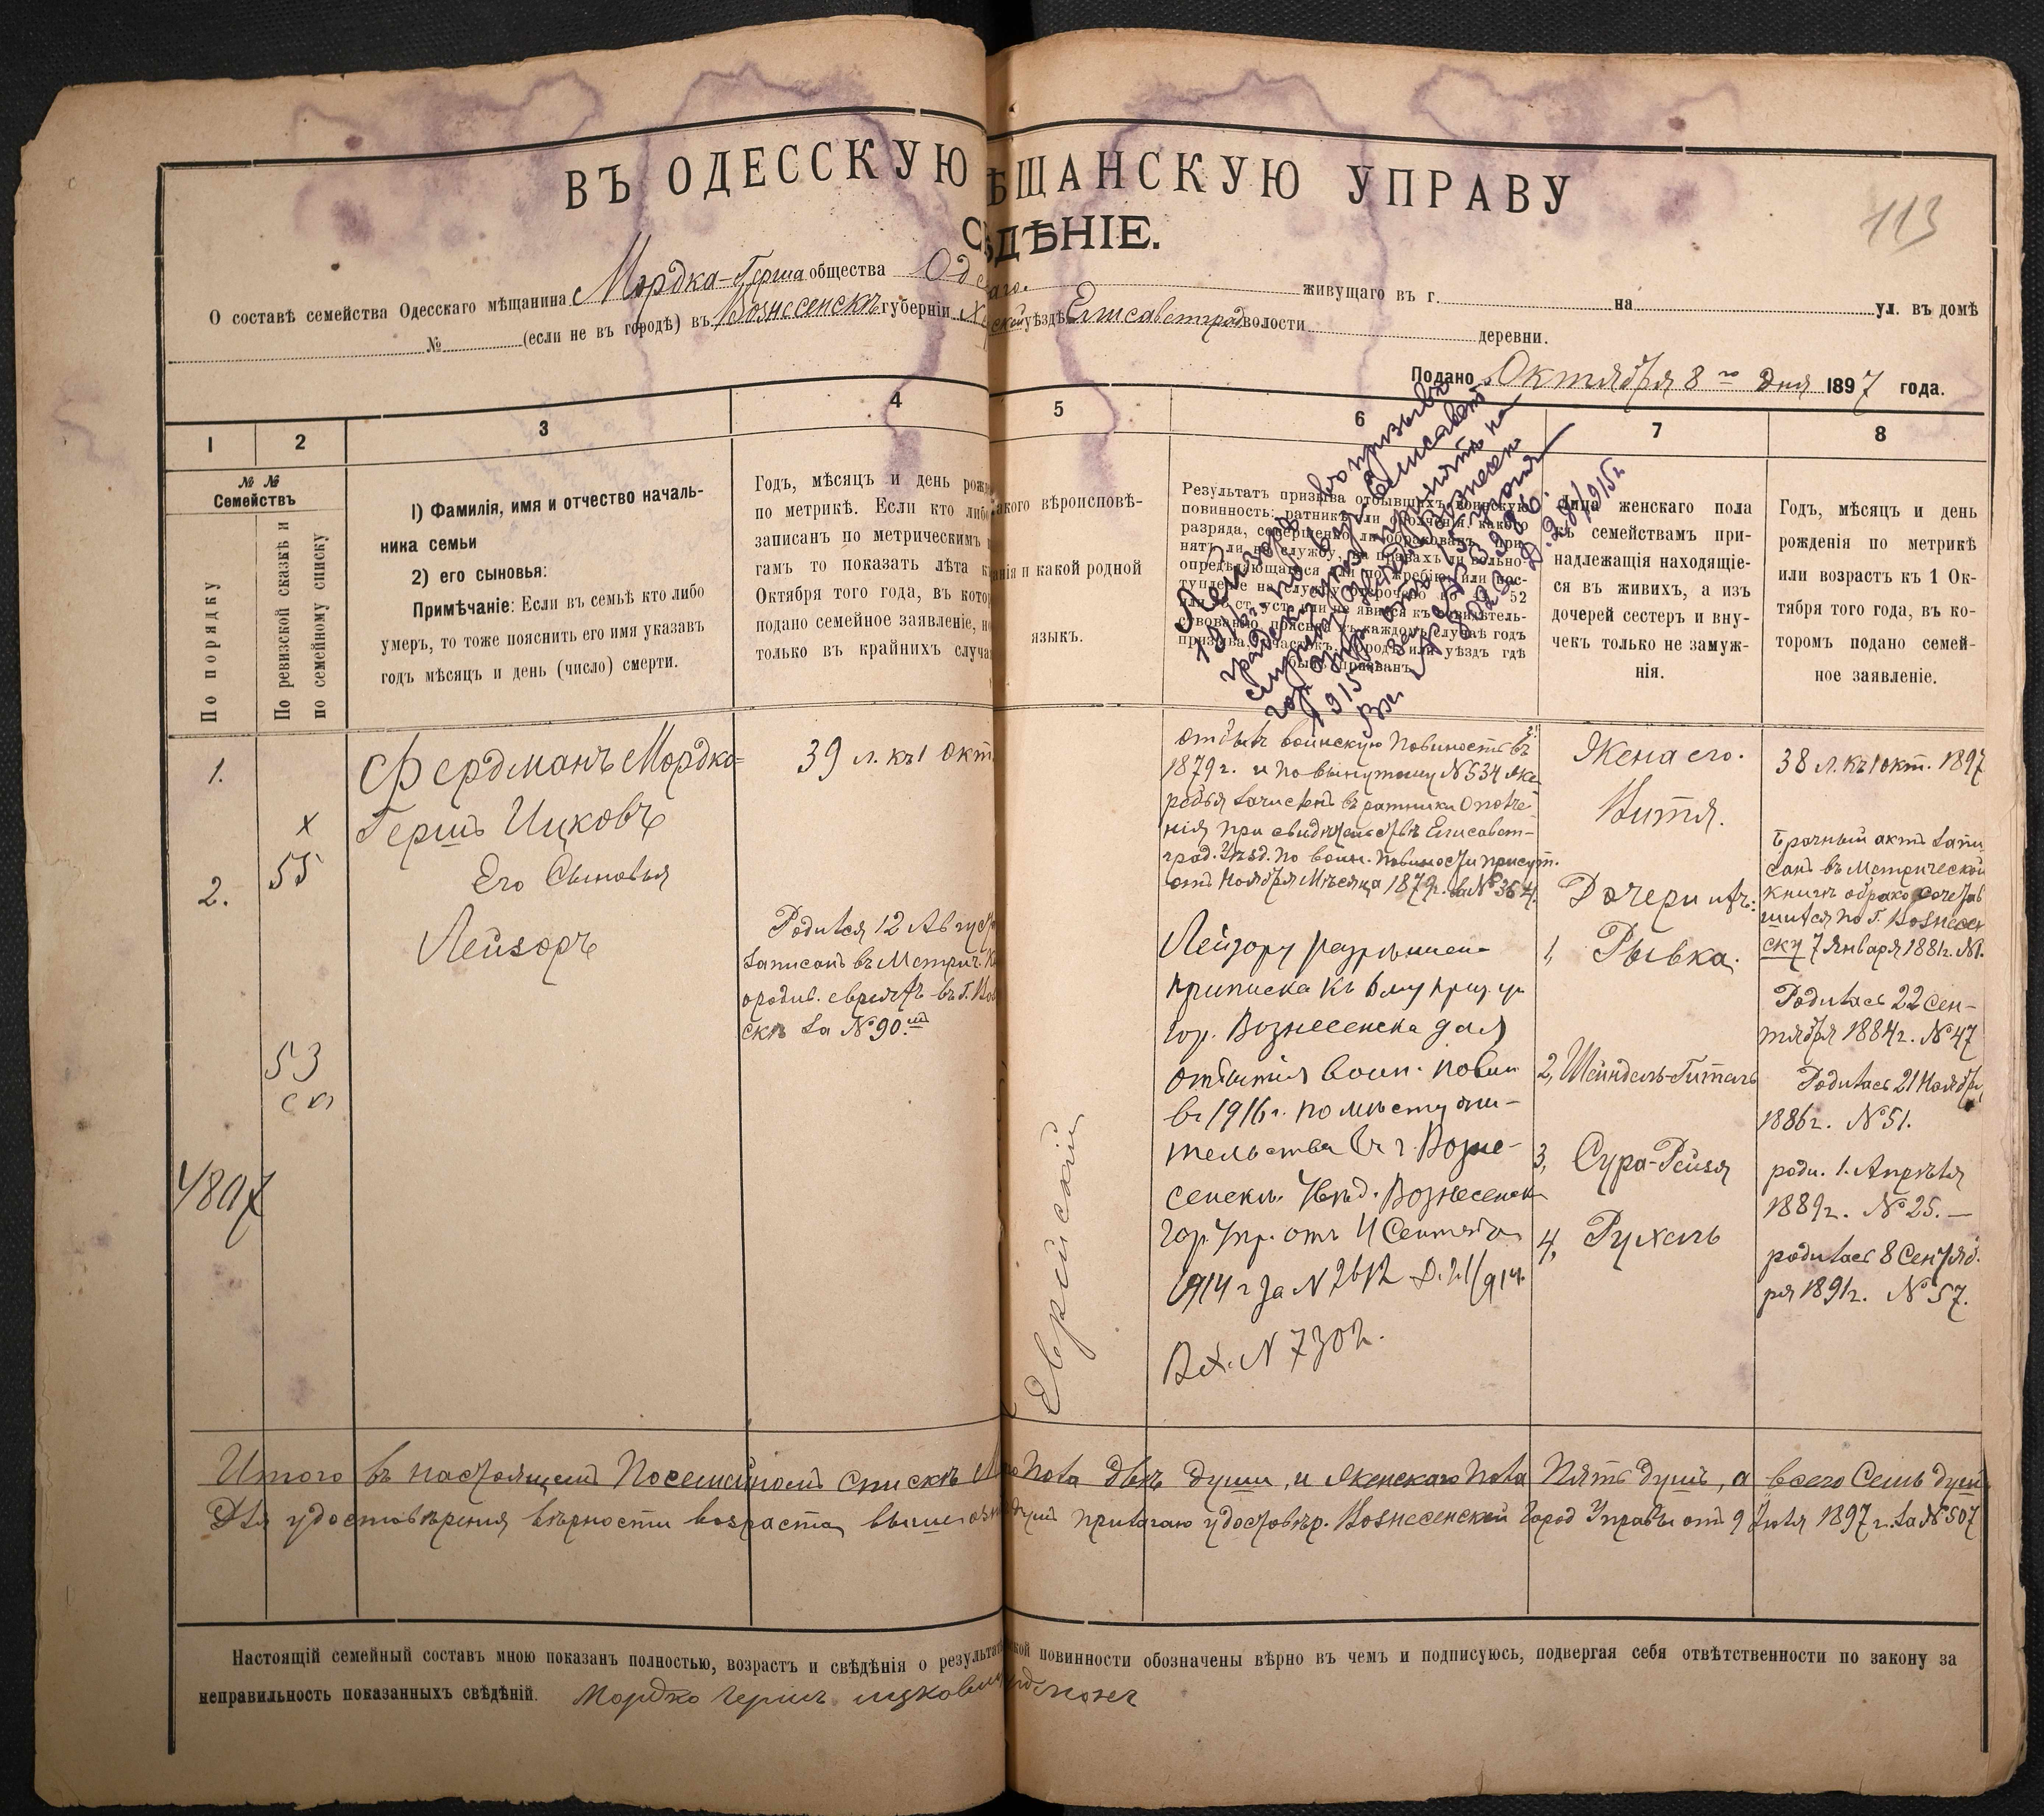 ВЪ ОДЕССКУЮ ѢЩАНСКУЮ УПРАВУ
СѢДѢНІЕ.
113
О составѣ семейства Одесскаго мѣщанина Мордка-Герша общества Од аго. живущаго въ г. на ул. въ домѣ
№ (если не въ городѣ) въ Вознесенскѣ губерніи Х ской уѣздѣ Елисаветград волости деревни.
Подано Октября 8го дня 1897 года.
1 2 3 4 5 6 7 8
№ №
Семействъ
По порядку
По ревизской сказкѣ и
по семейному списку
1) Фамилія, имя и отчество началь-
ника семьи
2) его сыновья:
Примѣчаніе: Если въ семьѣ кто либо
умеръ, то тоже пояснить его имя указавъ
годъ мѣсяцъ и день (число) смерти.
Годъ, мѣсяцъ и день рожд
по метрикѣ. Если кто либо
записанъ по метрическимъ
гамъ то показать лѣта к
Октября того года, въ кото
подано семейное заявленіе, н
только въ крайнихъ случа
акого вѣроисповѣ-
анія и какой родной
языкъ.
Результатъ призыва отбывшихъ воинскую
повинность: ратникъ ли ополченія, какого
разряда, совершенно ли обракованъ, при-
нятъ ли на службу, на правахъ ли вольно-
опредѣляющагося или по жребію, или пос-
тупленіе на службу отсрочено по 52
или ст. уст. или не явился къ освидѣтель-
ствованію, пояснивъ въ каждомъ случаѣ годъ
призыва, участокъ, городъ или уѣздъ гдѣ
былъ призванъ.
Лейзоръ въ призывъ
1915г. по вр. Елисавет
1915 г. за № 3396.
Д. 28/1915г.
Лица женскаго пола
къ семействамъ при-
надлежащія находящіе-
ся въ живихъ, а изъ
дочерей сестеръ и вну-
чекъ только не замуж-
нія.
Годъ, мѣсяцъ и день
рожденія по метрикѣ
или возрастъ къ 1 Ок-
тября того года, въ ко-
торомъ подано семей-
ное заявленіе.
1.
x
55
2.
53
сп
Фердманъ Мордко=
Гершъ Ицковъ
Его Сыновья
Лейзоръ
39 л. къ 1 Окт.
Родился 12 Август
Записанъ въ Метрич. К
о родив. евреяхъ въ г. Воз
скѣ за №90.ый
Еврейскій
отбывъ воинскую повиность въ
1879 г. и по вынутому №534 же
ребья зачисленъ въ ратники ополче-
нія при свидѣтельствѣ Елисавет-
град. Уѣзд. по воин. повиности присут.
отъ Ноября Мѣсяца 1879г. за №364.
Лейзору разрѣшена
приписка къ 6 му приз. уч
гор. Вознесенска для
отбытія воин. повин
въ 1916 г. по мѣсту жи-
тельства въ г. Возне-
сенскѣ. Увѣд. Вознесенск
Гор. Упр. отъ 11 Сентября
1914 г за N 2612
Вх. N 7302.
Жена его.
Витя.
Дочери ихъ:
1, Рывка.
2, Шейндель-Гитель
3, Сура-Рейзя
4, Рухель
38 л. къ 1 окт. 1897
Брачный актъ запи-
санъ въ Метрической
книгѣ о бракосочетав
шихся по г. Вознесен
ску 7 Января 1881г. №1.
Родилась 22 Сен-
тября 1884г. №47
Родилась 21 Ноября
1886г. №51.
роди. 1. Апрѣля
1889г. №25.—
родилась 8 Сентяб.
ря 1891г. №57.
Итого въ настоящемъ Посемейномъ спискѣ М пола двѣ души, и Женскаго пола Пять душъ, а всего Семь душъ
Для удостовѣренія вѣрности возраста вышеозн душъ прилагаю удостовѣр. Вознесенской Город Управы отъ 9 Іюля 1897 г. за №507
Настоящій семейный составъ мною показанъ полностью, возрастъ и свѣдѣнія о результат ской повинности обозначены вѣрно въ чемъ и подписуюсь, подвергая себя отвѣтственности по закону за
неправильность показанныхъ свѣдѣній. Мордко Гершъ Ицковичъ рдманъ